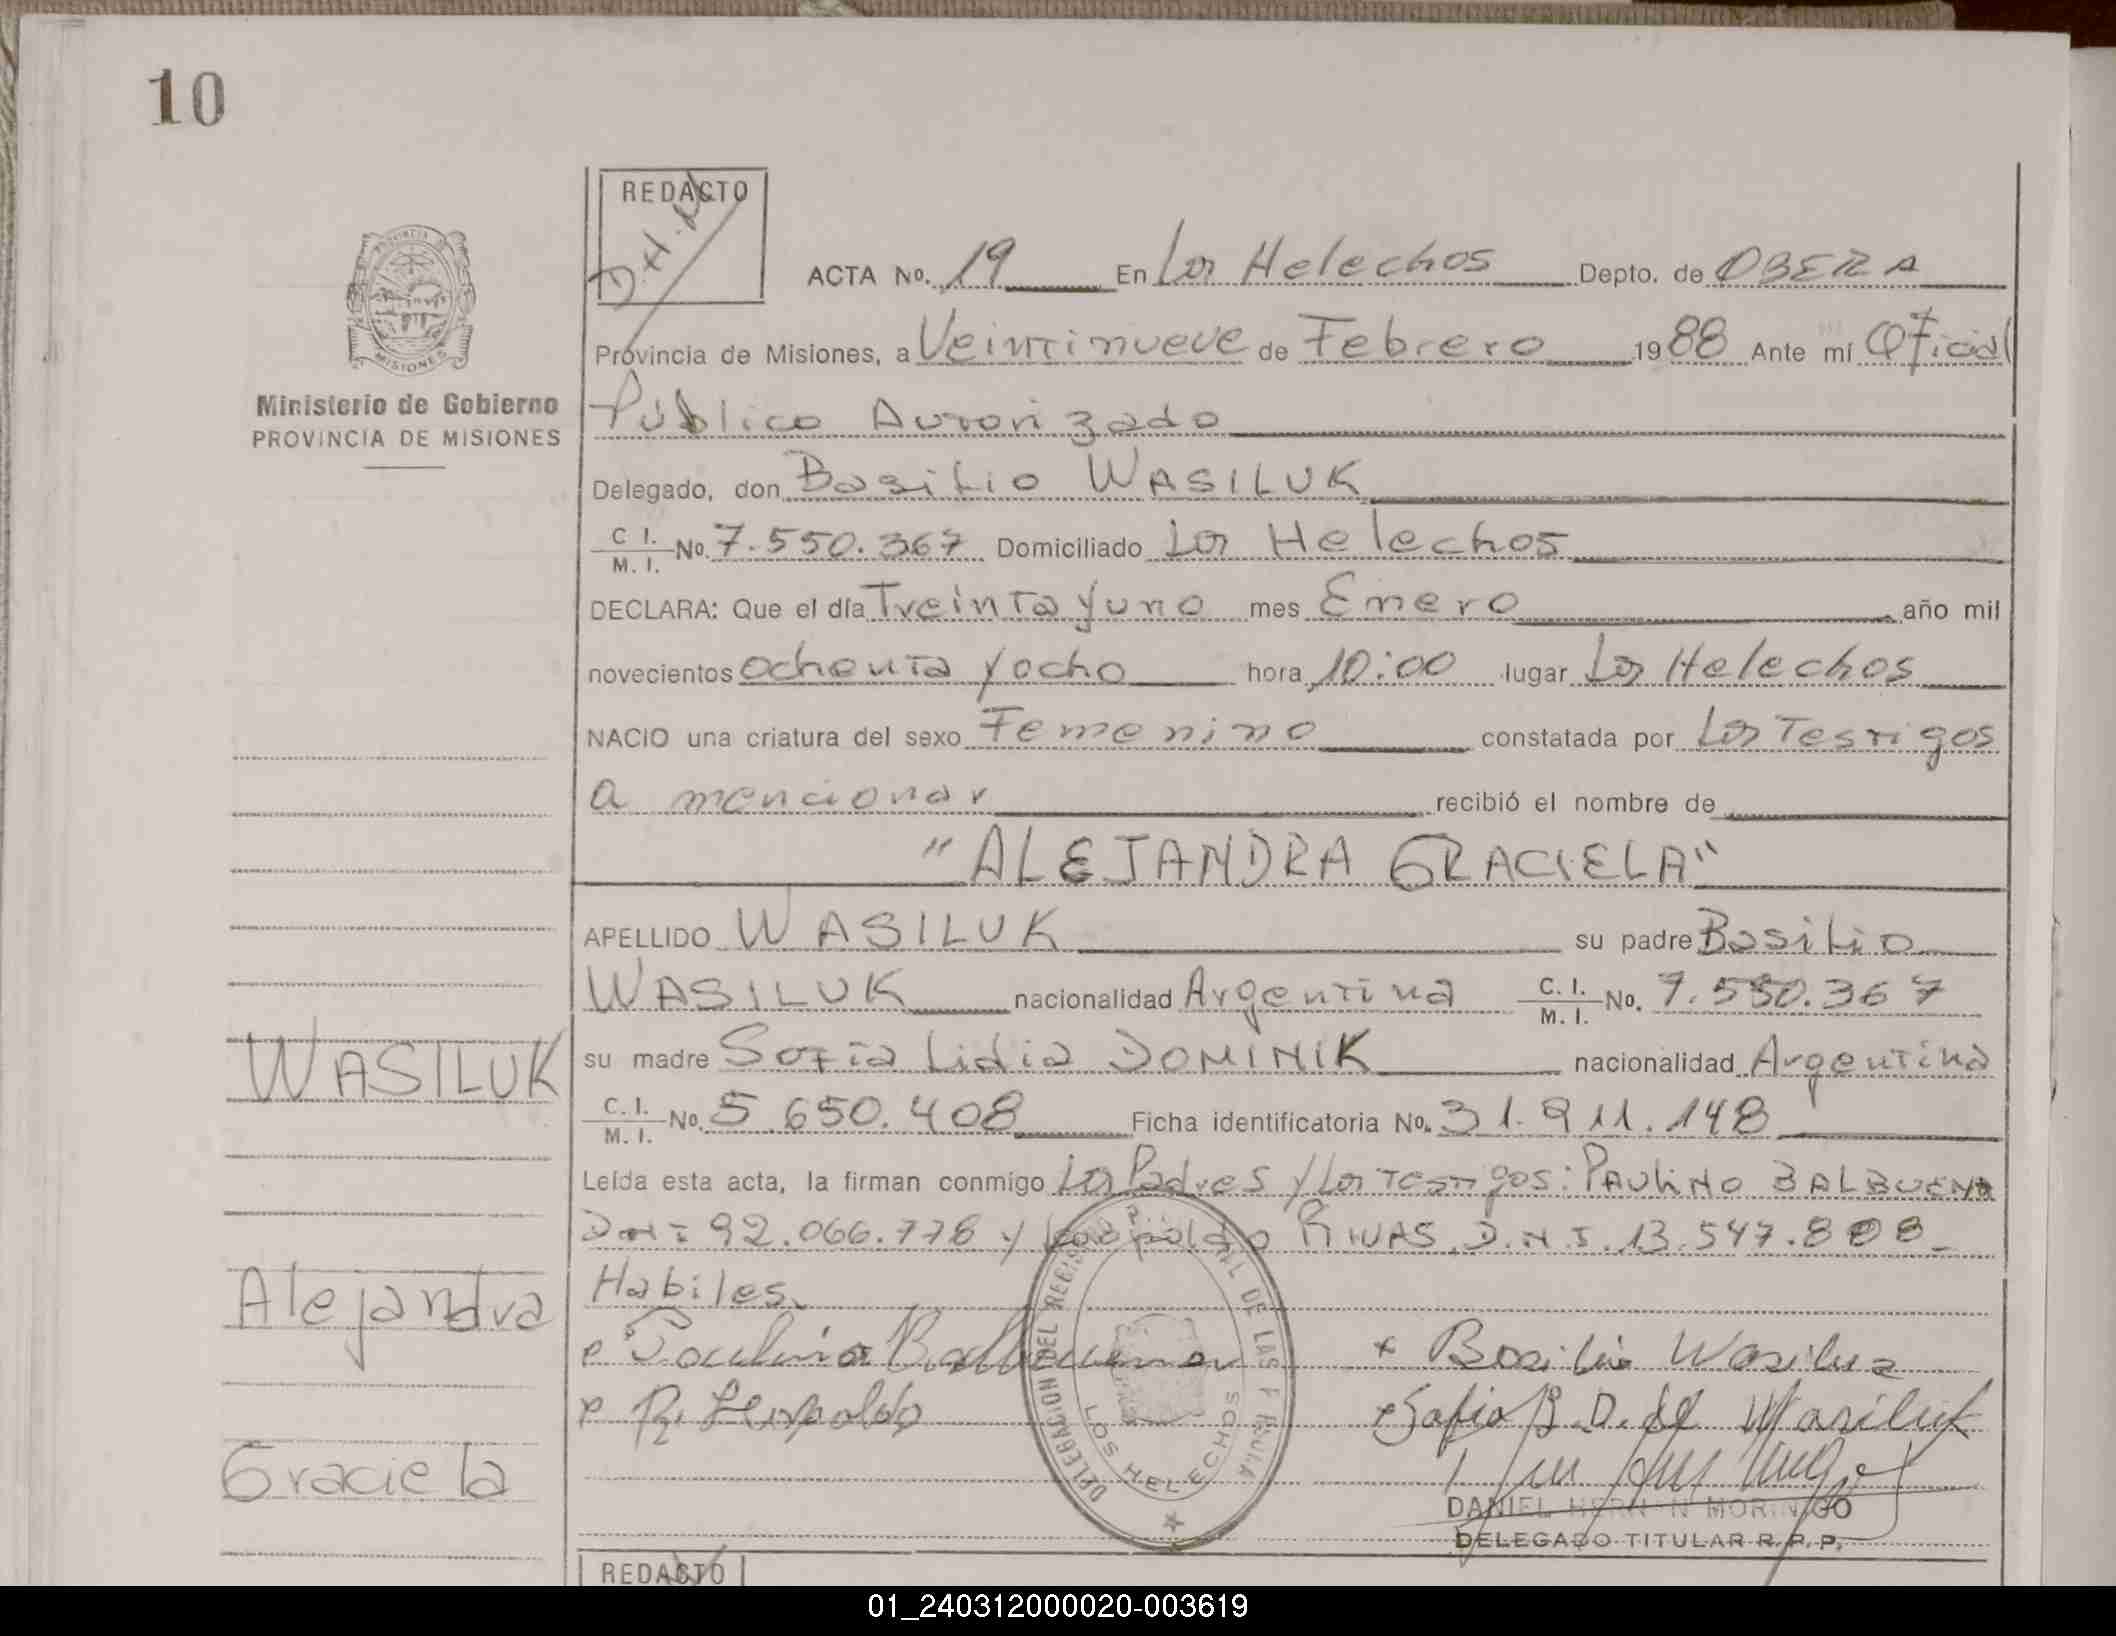 10
REDACTO
D.H.M
ACTA No. 19 En Los Helechos Depto. de OBERA
Provincia de Misiones, a Veintinueve de Febrero 1988 Ante mí Oficial
Público Autorizado
Delegado, don Basilio WASILUK
C I. / M. I. No. 7.550.367 Domiciliado Los Helechos
DECLARA: Que el día Treinta y uno mes Enero año mil
novecientos ochenta y ocho hora 10:00 lugar Los Helechos
NACIO una criatura del sexo Femenino constatada por Los Testigos
a mencionar recibió el nombre de
"ALEJANDRA GRACIELA"
APELLIDO WASILUK su padre Basilio
WASILUK nacionalidad Argentina C. I. / M. I. No. 7.550.367
su madre Sofia Lidia DOMINIK nacionalidad Argentina
C. I. / M. I. No. 5.650.408 Ficha identificatoria No. 31.911.148
Leída esta acta, la firman conmigo Los Padres y Los Testigos: PAULINO BALBUENA
DNI: 92.066.778 y Leopoldo RIVAS D.N.I. 13.547.808
Habiles.
Paulino Balbuena
Basilio Wasiluk
R. Leopoldo
Sofia D. de Wasiluk
DELEGACION DEL REGISTRO DE LAS
LOS HELECHOS
DANIEL HERNAN MORINIGO
DELEGADO TITULAR R. P. P.
PROVINCIA
MISIONES
Ministerio de Gobierno
PROVINCIA DE MISIONES
WASILUK
Alejandra
Graciela
REDACTO
01_240312000020-003619